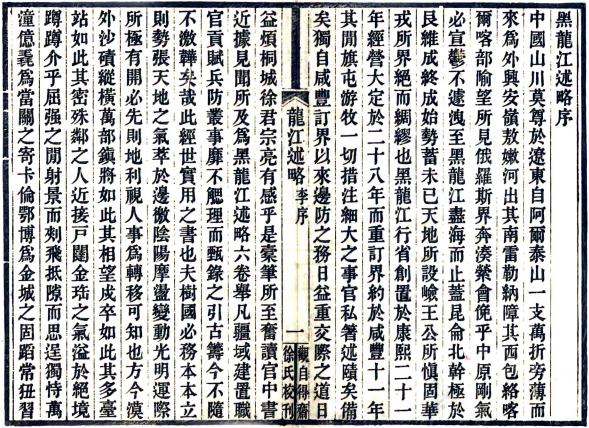 黑龍江述略序
中國山川莫尊於遼東自阿爾泰山一支萬折旁薄而
來為外興安嶺敖嫩河出其南雷勒納障其西包絡喀
爾喀部喻望所見俄羅斯界奔湊縈會俛乎中原剛氣
必宣鬱不遽洩至黑龍江盡海而止蓋昆侖北幹極於
艮維成終成始勢蓄未已天地所設嶮王公所愼固華
戎所界絕而綢繆也黑龍江行省創置於康熙二十一
年經營大定於二十八年而重訂界約於咸豐十一年
其閒旗屯游牧一切措注細大之事官私箸述賾矣備
矣獨自咸豐訂界以來邊防之務日益重交際之道日
龍江述略 李序 一 觀自得齋
徐氏校刊
益煩桐城徐君宗亮有感乎是橐筆所至奮讀官中書
近據見聞所及為黑龍江述略六卷舉凡疆域建置職
官貢賦兵防叢事靡不觼理而甄錄之引古籌今不隨
不激韡矣哉此經世實用之書也夫樹國必務本本立
則勢張天地之氣萃於邊徼陰陽摩盪變動光明運際
所極有開必先則地利視人事為轉移可知也方今漠
外沙磧縱橫萬部鎭將如此其相望戍卒如此其多臺
站如此其密殊鄰之人近接戶闥金珤之氣溢於絕境
蹲蹲介乎屈强之閒射景而刾飛抵隙而思逞獨恃萬
潼億毳為當關之寄卡倫鄂博為金城之固蹈常狃習